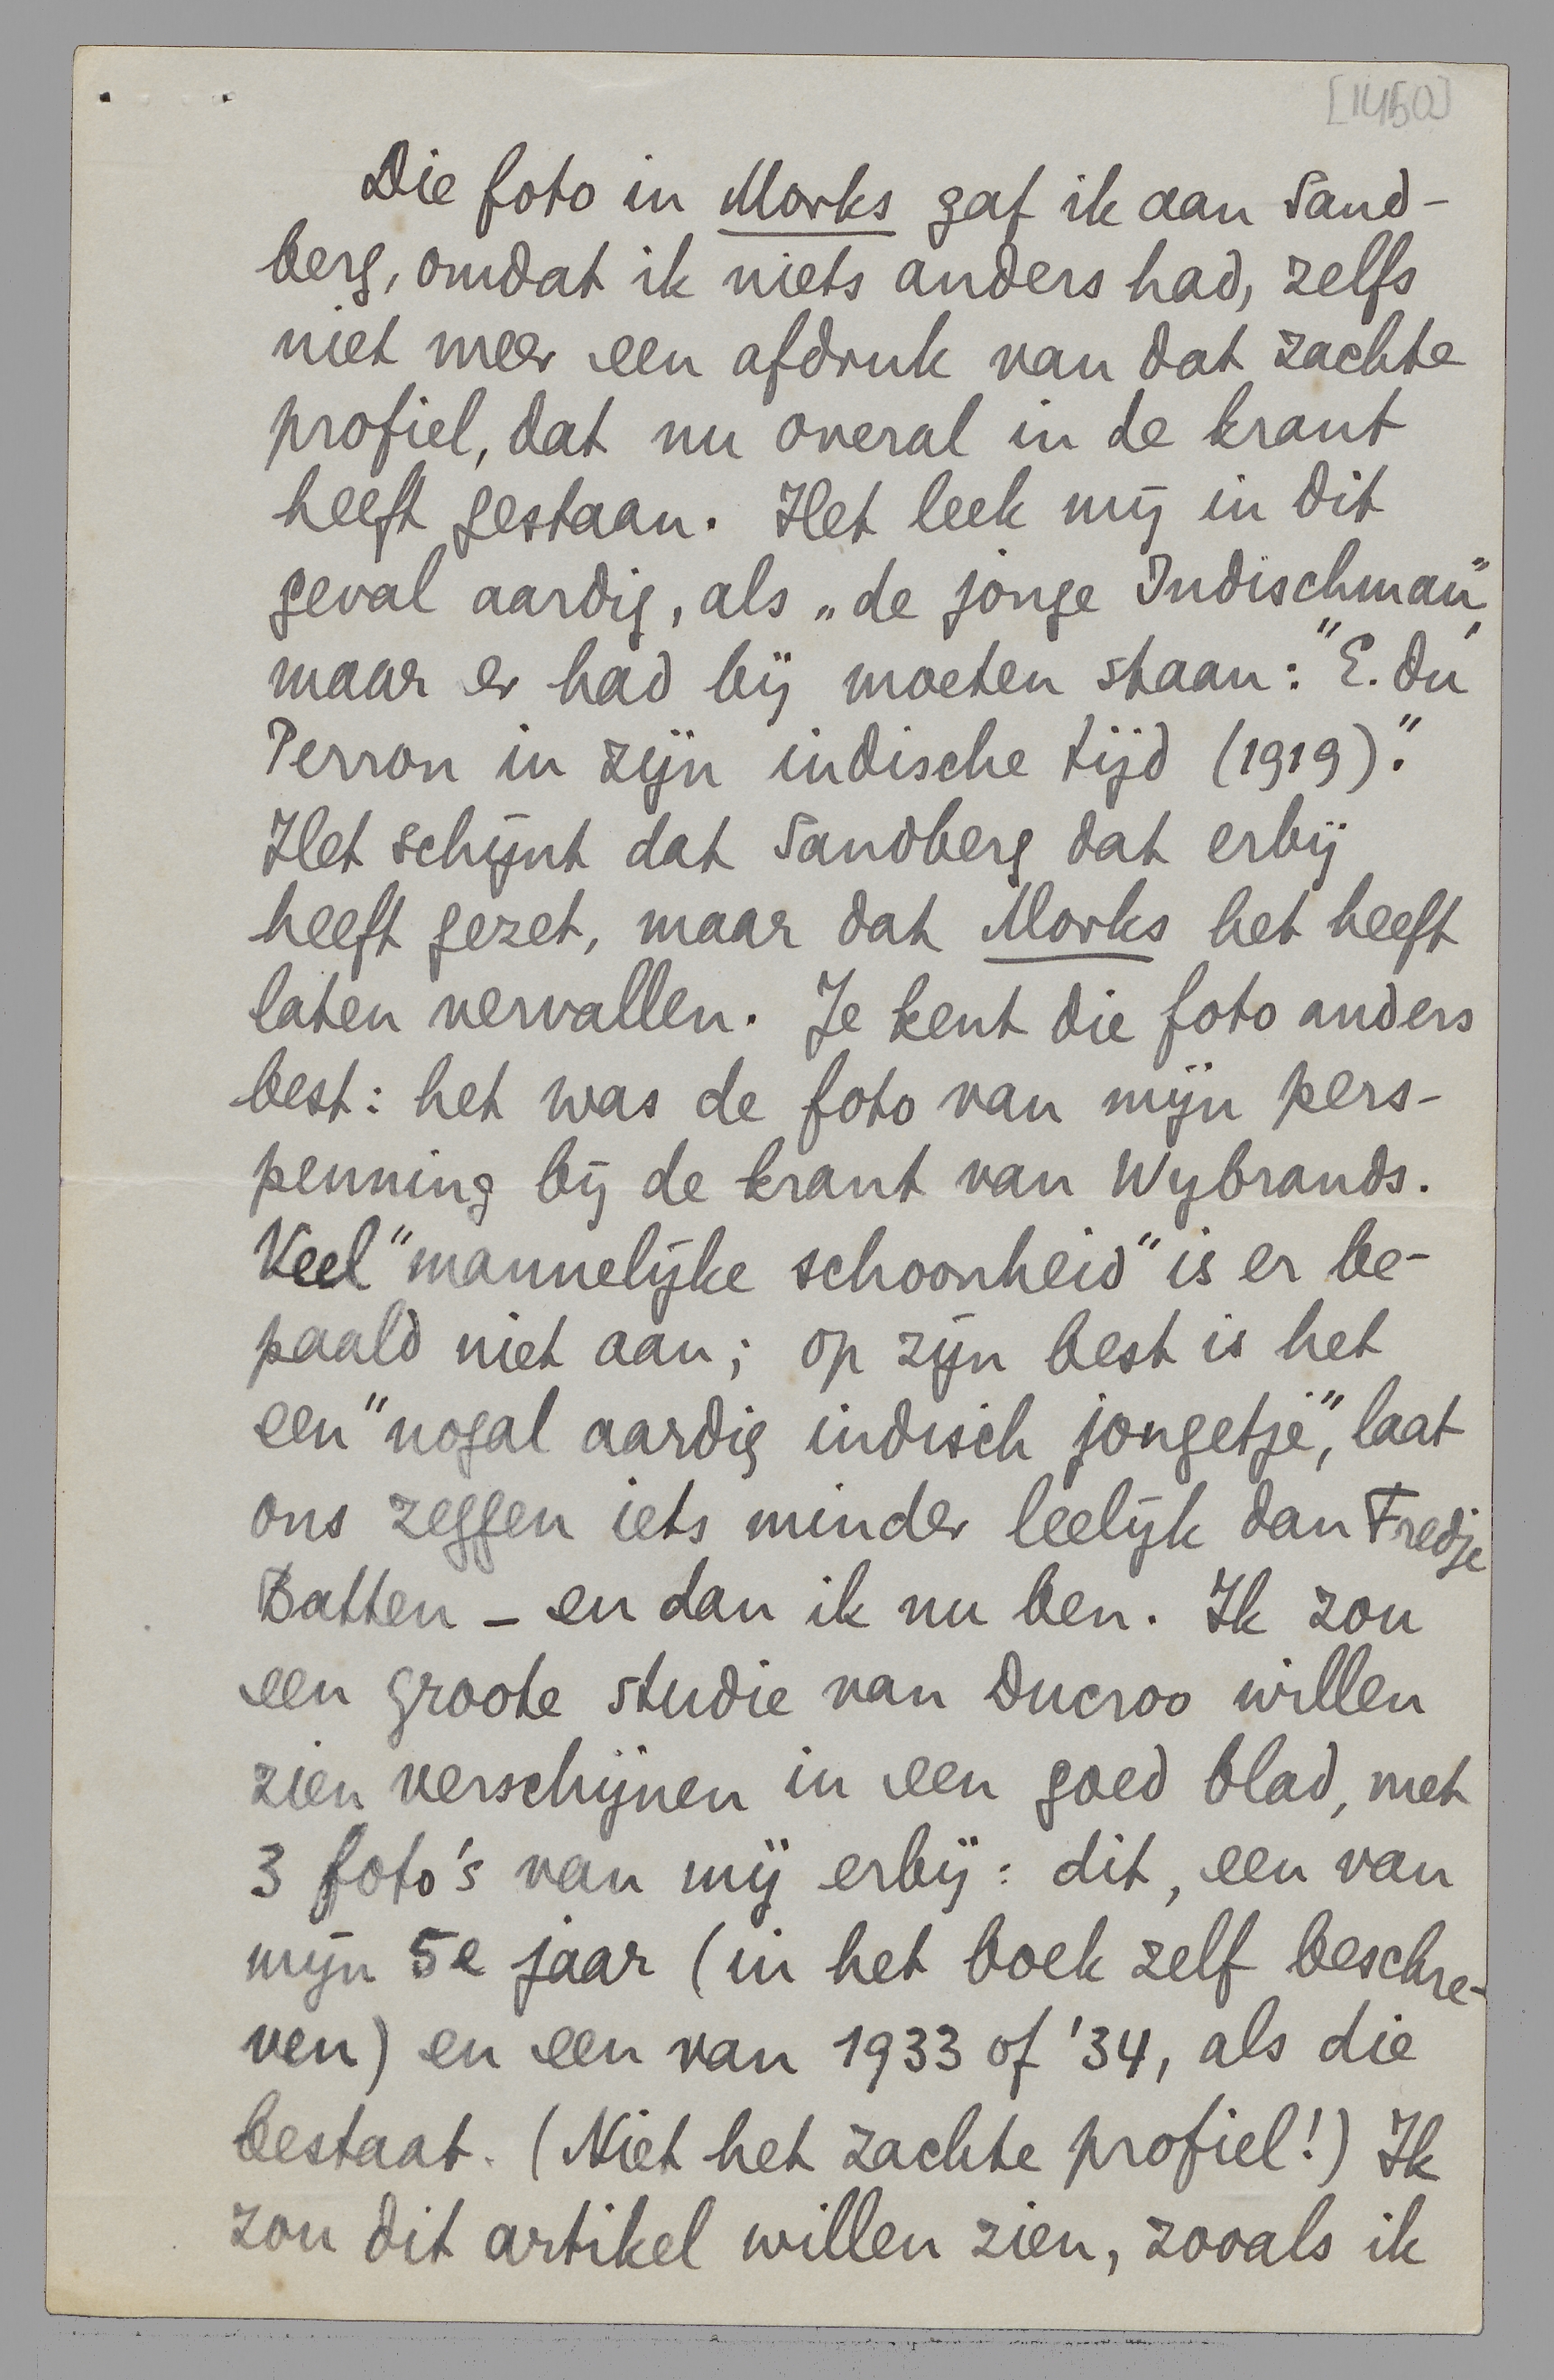 [1450]
Die foto in Morks gaf ik aan Sand-
berg, omdat ik niets anders had, zelfs
niet meer een afdruk van dat zachte
profiel, dat nu overal in de krant
heeft gestaan. Het leek mij in dit
geval aardig, als „de jonge Indischman",
maar er had bij moeten staan: "E. du
Perron in zijn indische tijd (1919)".
Het schijnt dat Sandberg dat erbij
heeft gezet, maar dat Morks het heeft
laten vervallen. Je kent die foto anders
best: het was de foto van mijn pers-
penning bij de krant van Wybrands.
Veel "mannelijke schoonheid" is er be-
paald niet aan; op zijn best is het
een "nogal aardig indisch jongetje", laat
ons zeggen iets minder leelijk dan Fredje
Batten - en dan ik nu ben. Ik zou
een groote studie van Ducroo willen
zien verschijnen in een goed blad, met
3 foto's van mij erbij: dit, een van
mijn 5e jaar (in het boek zelf beschre-
ven) en een van 1933 of '34, als die
bestaat. (Niet het zachte profiel!) Ik
zou dit artikel willen zien, zooals ik